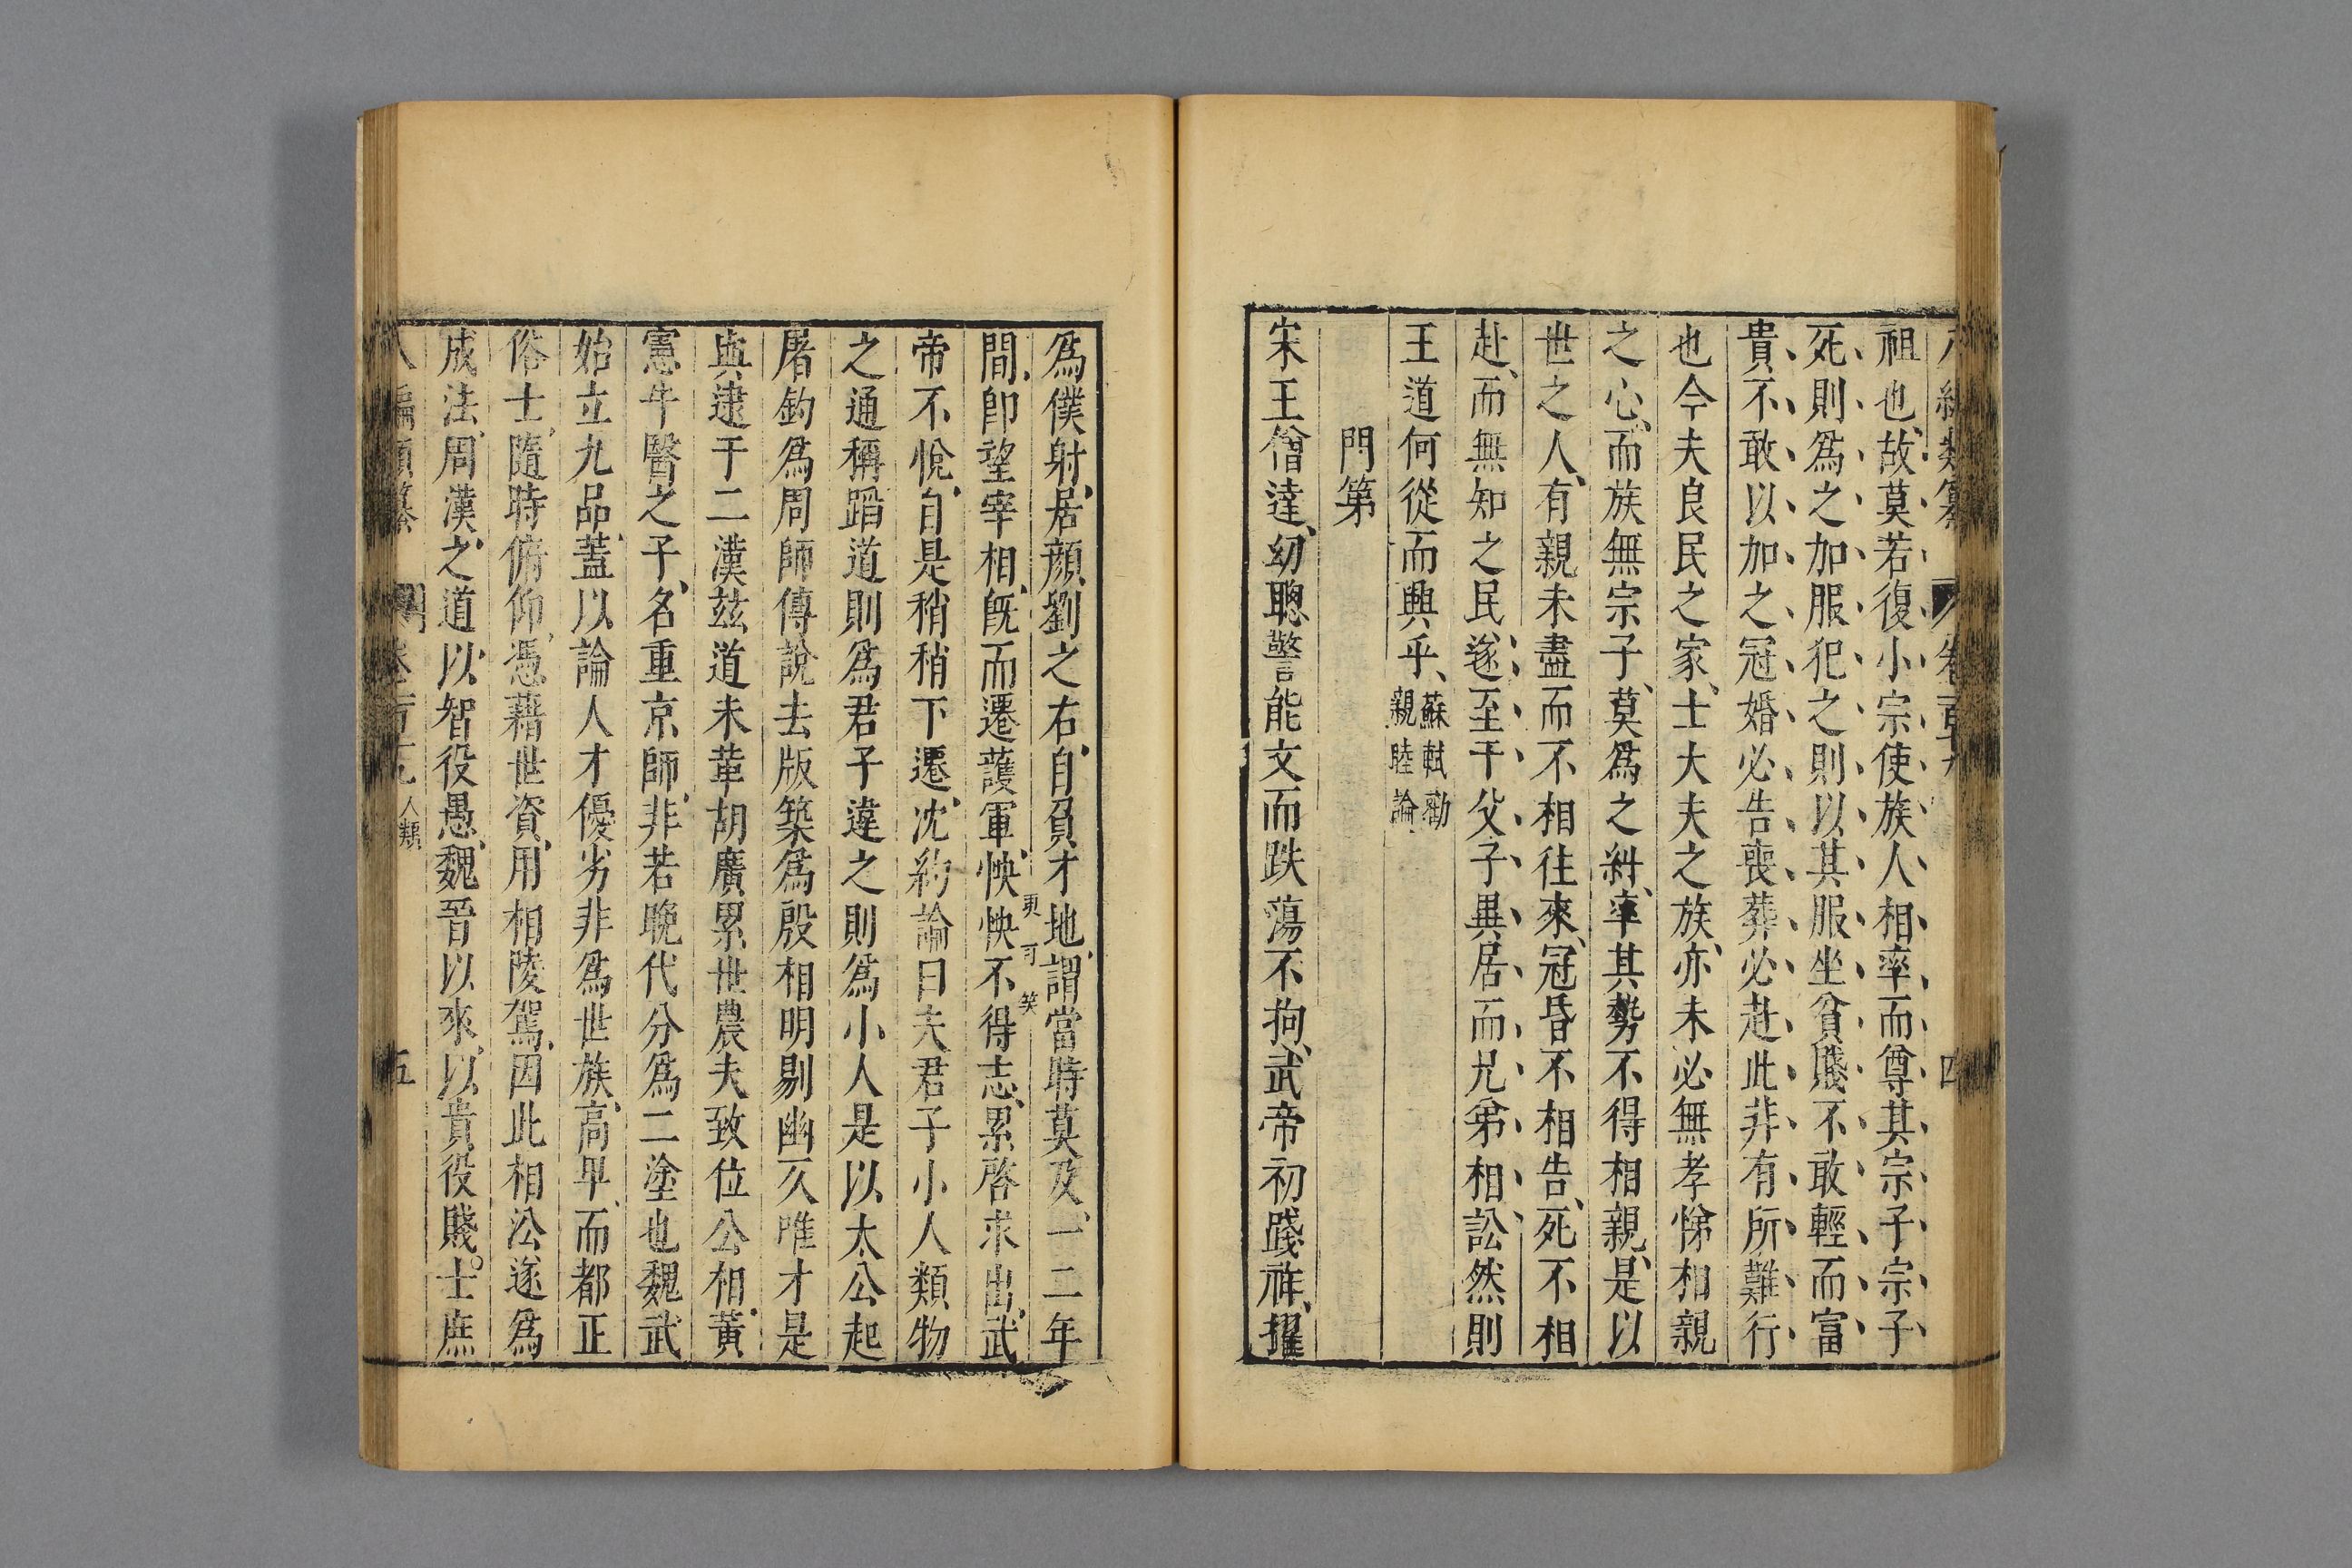 八編類纂 卷百十九 四
祖也、故莫若復小宗使族人相率而尊其宗子宗子
死則爲之加服犯之則以其服坐貧賤不敢輕而富
貴不敢以加之冠婚必告喪葬必赴此非有所難行
也今夫良民之家、士大夫之族、亦未必無孝悌相親
之心、而族無宗子、莫爲之糾、率其勢不得相親、是以
世之人、有親未盡而不相往來、冠昏不相告、死不相
赴、而無知之民遂至于父子異居而兄弟相訟然則
王道何從而興乎、蘇軾勸親睦論
門第
宋王僧達、幼聰警能文而跌蕩不拘、武帝初踐祚、擢
爲僕射、居顏劉之右、自負才地、謂當時莫及、一二年
更可笑
間、卽望宰相、旣而遷護軍、怏怏不得志、累啓求出、武
帝不悅、自是稍稍下遷、沈約論曰夫君子小人類物
之通稱蹈道則爲君子違之則爲小人是以太公起
屠釣爲周師傅說去版築爲殷相明剔幽仄唯才是
與逮于二漢茲道未革胡廣累世農夫致位公相、黃
憲牛醫之子、名重京師、非若晚代分爲二塗也魏武
始立九品、蓋以論人才優劣非爲世族、高卑、而都正
俗士、隨時俯仰、憑藉世資、用相陵駕、因此相沿遂爲
成法、周漢之道以智役愚、魏晉以來、以貴役賤。士庶
八編類纂 卷百十九 人類 五